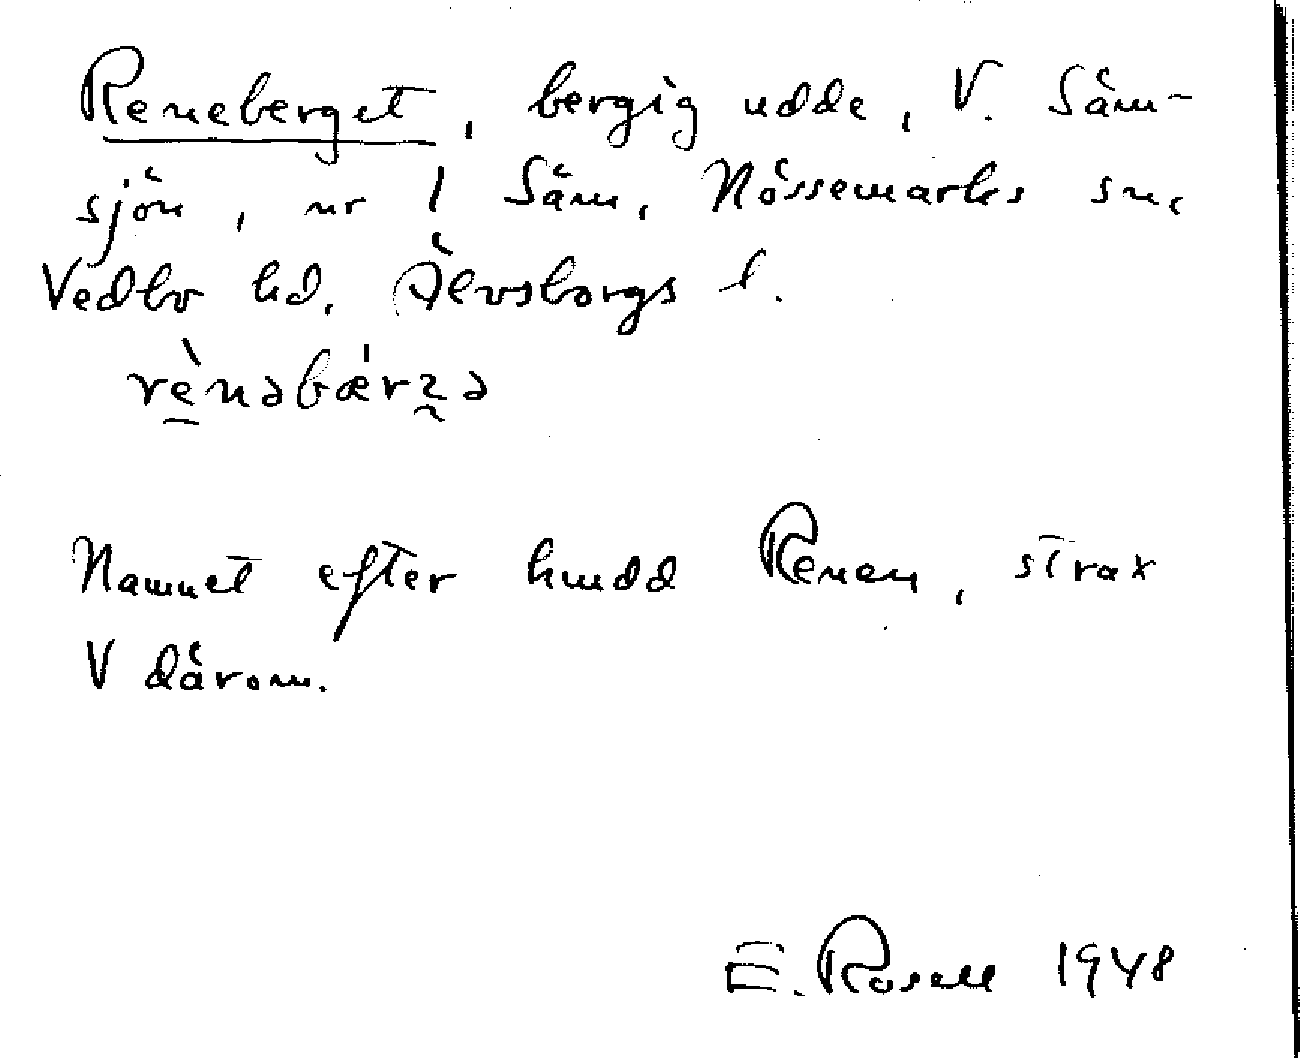 Reneberget, bergig udde, V. Säm-
sjön, nr 1 Säm, Nössemarks sn,
Vedbo hd, Älvsborgs l.
rènəbǽrʒə
Namnet efter hmdd Renen, strax
V därom.
E. Rosell 1948